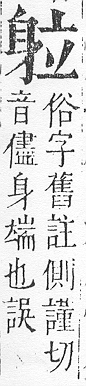 䠴
俗字舊註側謹切
音儘身端也誤